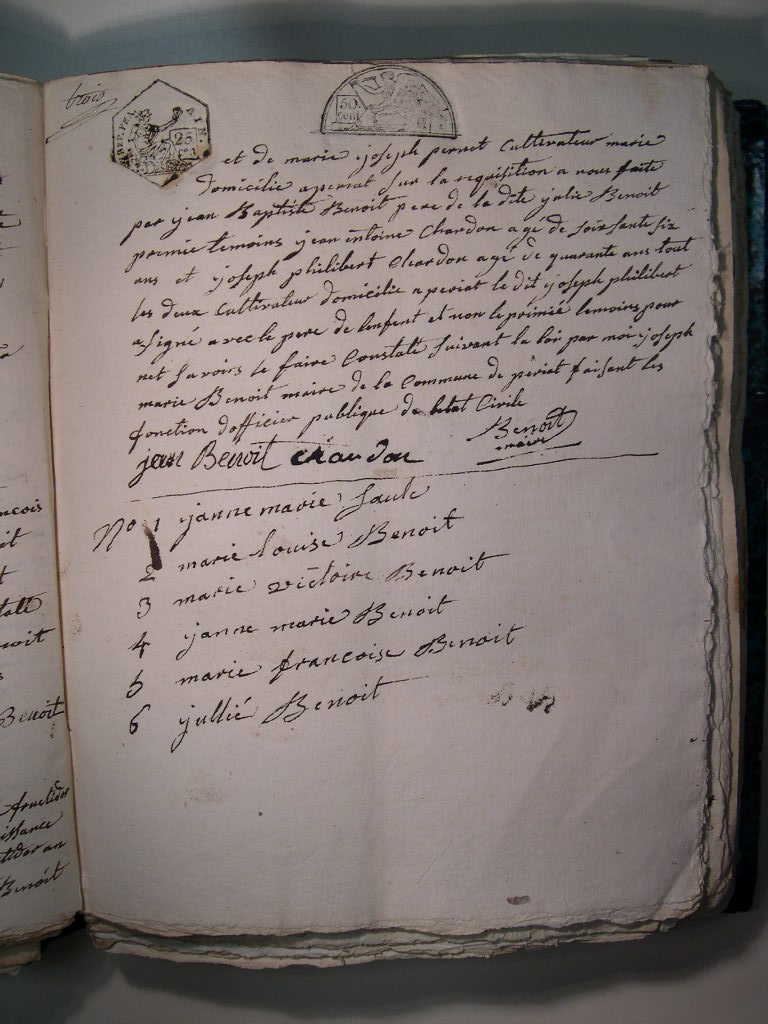 trois
AIN.
25
50
cent
et de marie joseph pernet Cultivateur marie
Domicilie a periat sur la requisition a nous faite
par jean Baptiste Benoit pere de la dite julie Benoit
premie temoins jean entoine Chardon agé de soixsante six
ans et joseph philibert Chardon agé de quarante ans tout
les deux Cultivateur domicilie a periat le dit joseph philibert
a signé avec le pere de lenfent et non le prémié temoins pour
net savoirs le faire Constaté suivant la loi par moi joseph
marie Benoit maire de la Commune de périat faisant les
fonction dofficier publique de letat Civile
jean Benoit chardon Benoit
maire
No 1 janne marie Saule
2 marie louise Benoit
3 marie victoire Benoit
4 janne marie Benoit
5 marie francoise Benoit
6 jullié Benoit
Benoit
Benoit